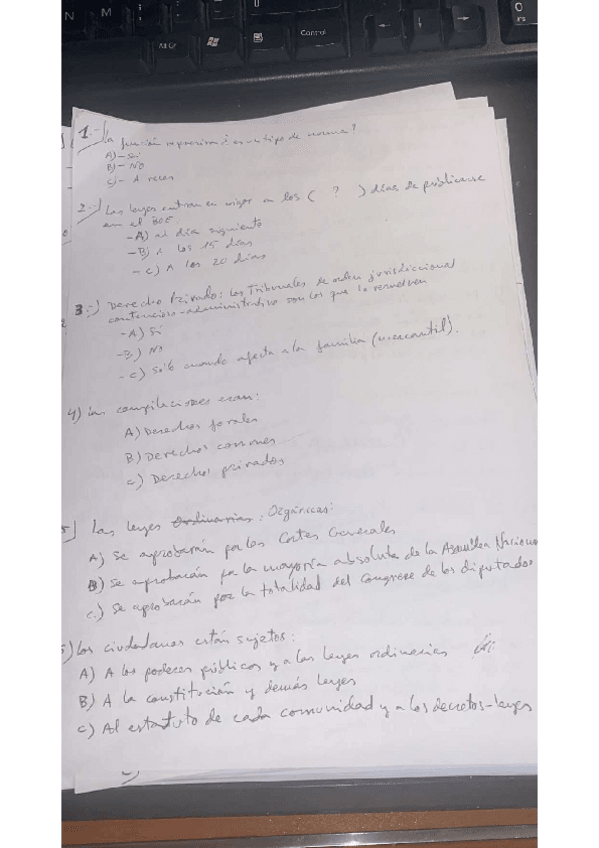 Alt Gr
Control
N
M
0
Ins
1.-) La función represiva ¿es un tipo de norma?
A)- Si
B)- NO
C)- A veces
2.-) Las leyes entran en vigor en los ( ? ) días de publicarse
en el BOE
-A) al día siguiente
-B) A los 15 días
-C) A los 20 días
3.-) Derecho Privado: los Tribunales de orden jurisdiccional
contencioso-administrativo son los que lo resuelven
-A) Si
-B) No
-C) Sólo cuando afecta a la familia (mercantil).
4) Las compilaciones eran:
A) Derechos forales
B) Derechos comunes
C) Derechos privados
5) Las leyes Ordinarias: Orgánicas:
A) Se aprobarán por las Cortes Generales
B) Se aprobarán por la mayoría absoluta de la Asamblea Naciona
C.) Se aprobarán por la totalidad del Congreso de los diputados
6) Los ciudadanos están sujetos:
A) A los poderes públicos y a las leyes ordinarias
B) A la constitución y demás leyes
C) Al estatuto de cada comunidad y a los decretos-leyes